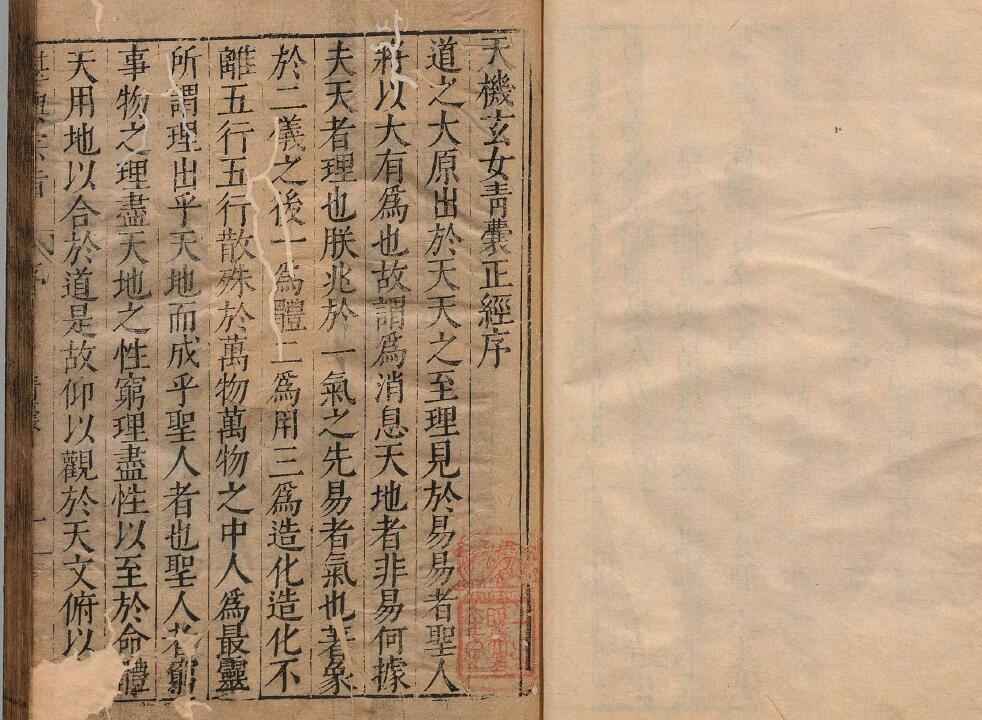 天機玄女青囊正經序
道之大原出於天天之至理見於易易者聖人
將以大有為也故謂為消息天地者非易何據
夫天者理也朕兆於一氣之先易者氣也著象
於二儀之後一為體二為用三為造化造化不
離五行五行散殊於萬物萬物之中人為最靈
所謂理出乎天地而成乎聖人者也聖人者窮
事物之理盡天地之性窮理盡性以至於命體
天用地以合於道是故仰以觀於天文俯以